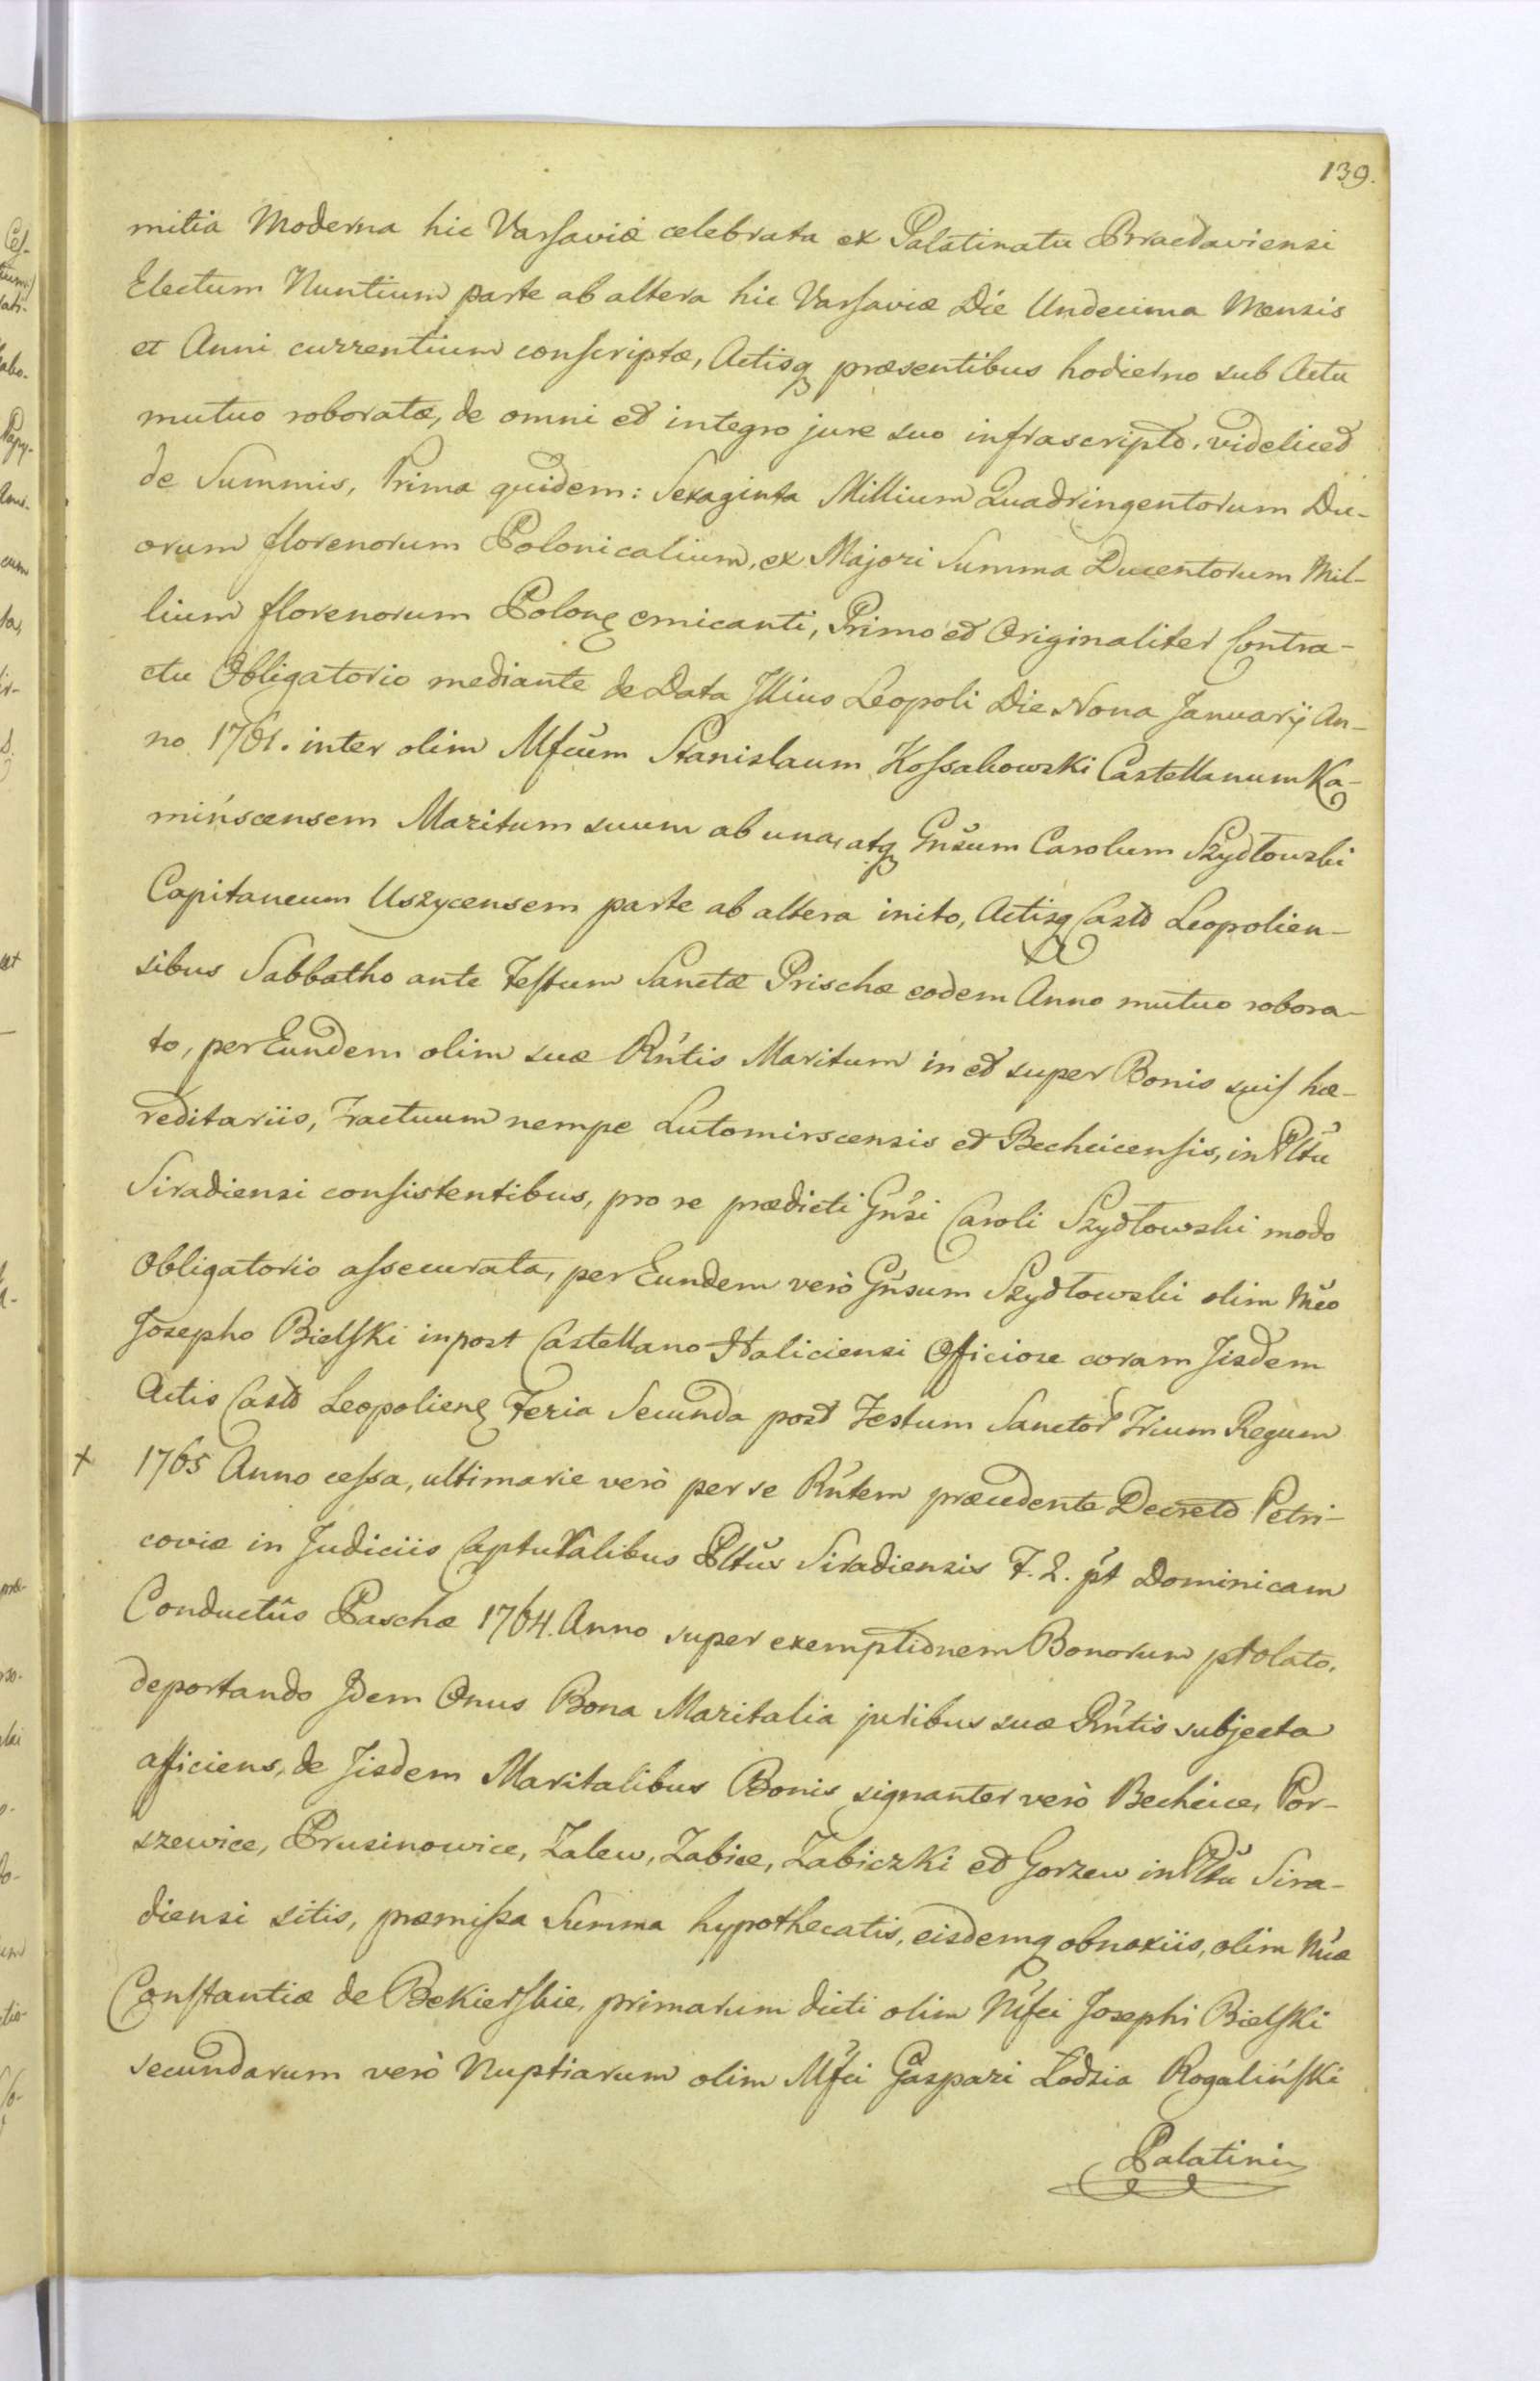 139.
mitia Moderna hic Varsaviæ celebrata ex Palatinatu Braclaviensi
Electum Nuntium parte ab altera hic Varsaviæ Die Undecima Mensis
et Anni currentium conscriptæ, Actisq præsentibus hodierno sub Actu
mutuo roboratæ, de omni et integro jure suo infrascripto, videlicet
de Summis, Prima quidem: Sexaginta Millium Quadringentorum Du-
orum florenorum Polonicalium, ex Majori Summa Ducentorum Mil-
lium florenorum Polon emicanti, Primo et Originaliter Contra-
ctu Obligatorio mediante de Data Illius Leopoli Die Nona Januarij An-
no 1761. inter olim Mfcum Stanislaum Kossakowski Castellanum Ka-
mińscensem Maritum suum ab una, atq Gnsum Carolum Szydłowski
Capitaneum Uszycensem parte ab altera inito, Actisq Castr Leopolien-
sibus Sabbatho ante Festum Sanctæ Priscæ eodem Anno mutuo robora-
to, per Eundem olim suæ Rntis Maritum in et super Bonis suis hæ-
reditariis, Tractuum nempe Lutomirscensis et Bechcicensis, in Pltu
Siradiensi consistentibus, pro re prædicti Gnsi Caroli Szydłowski modo
Obligatorio assecurata, per Eundem verò Gnsum Szydłowski olim Mco
Josepho Bielski inpost Castellano Haliciensi Officiose coram Iisdem
Actis Castr Leopolien Feria Secunda post Festum Sanctor Trium Regum
+ 1765 Anno cessa, ultimarie verò per se Rntem præcedente Decreto Petri-
coviæ in Judiciis Capturalibus Pltus Siradiensis F. 2. pt Dominicam
Conductûs Paschæ 1764. Anno super exemptionem Bonorum ptolato,
deportando Idem Onus Bona Maritalia juribus suæ Rntis subjecta
afficiens, de Iisdem Maritalibus Bonis signanter verò Bechcice, Por-
szewice, Prusinowice, Zalew, Zabice, Zabiczki et Gorzew in Pltu Sira-
diensi sitis, præmissa Summa hypothecatis, eisdemq obnoxiis, olim Mcæ
Constantiæ de Bekierskie, primarum dicti olim Mfci Josephi Bielski
secundarum verò Nuptiarum olim Mfci Gaspari Łodzia Rogaliński
Palatini